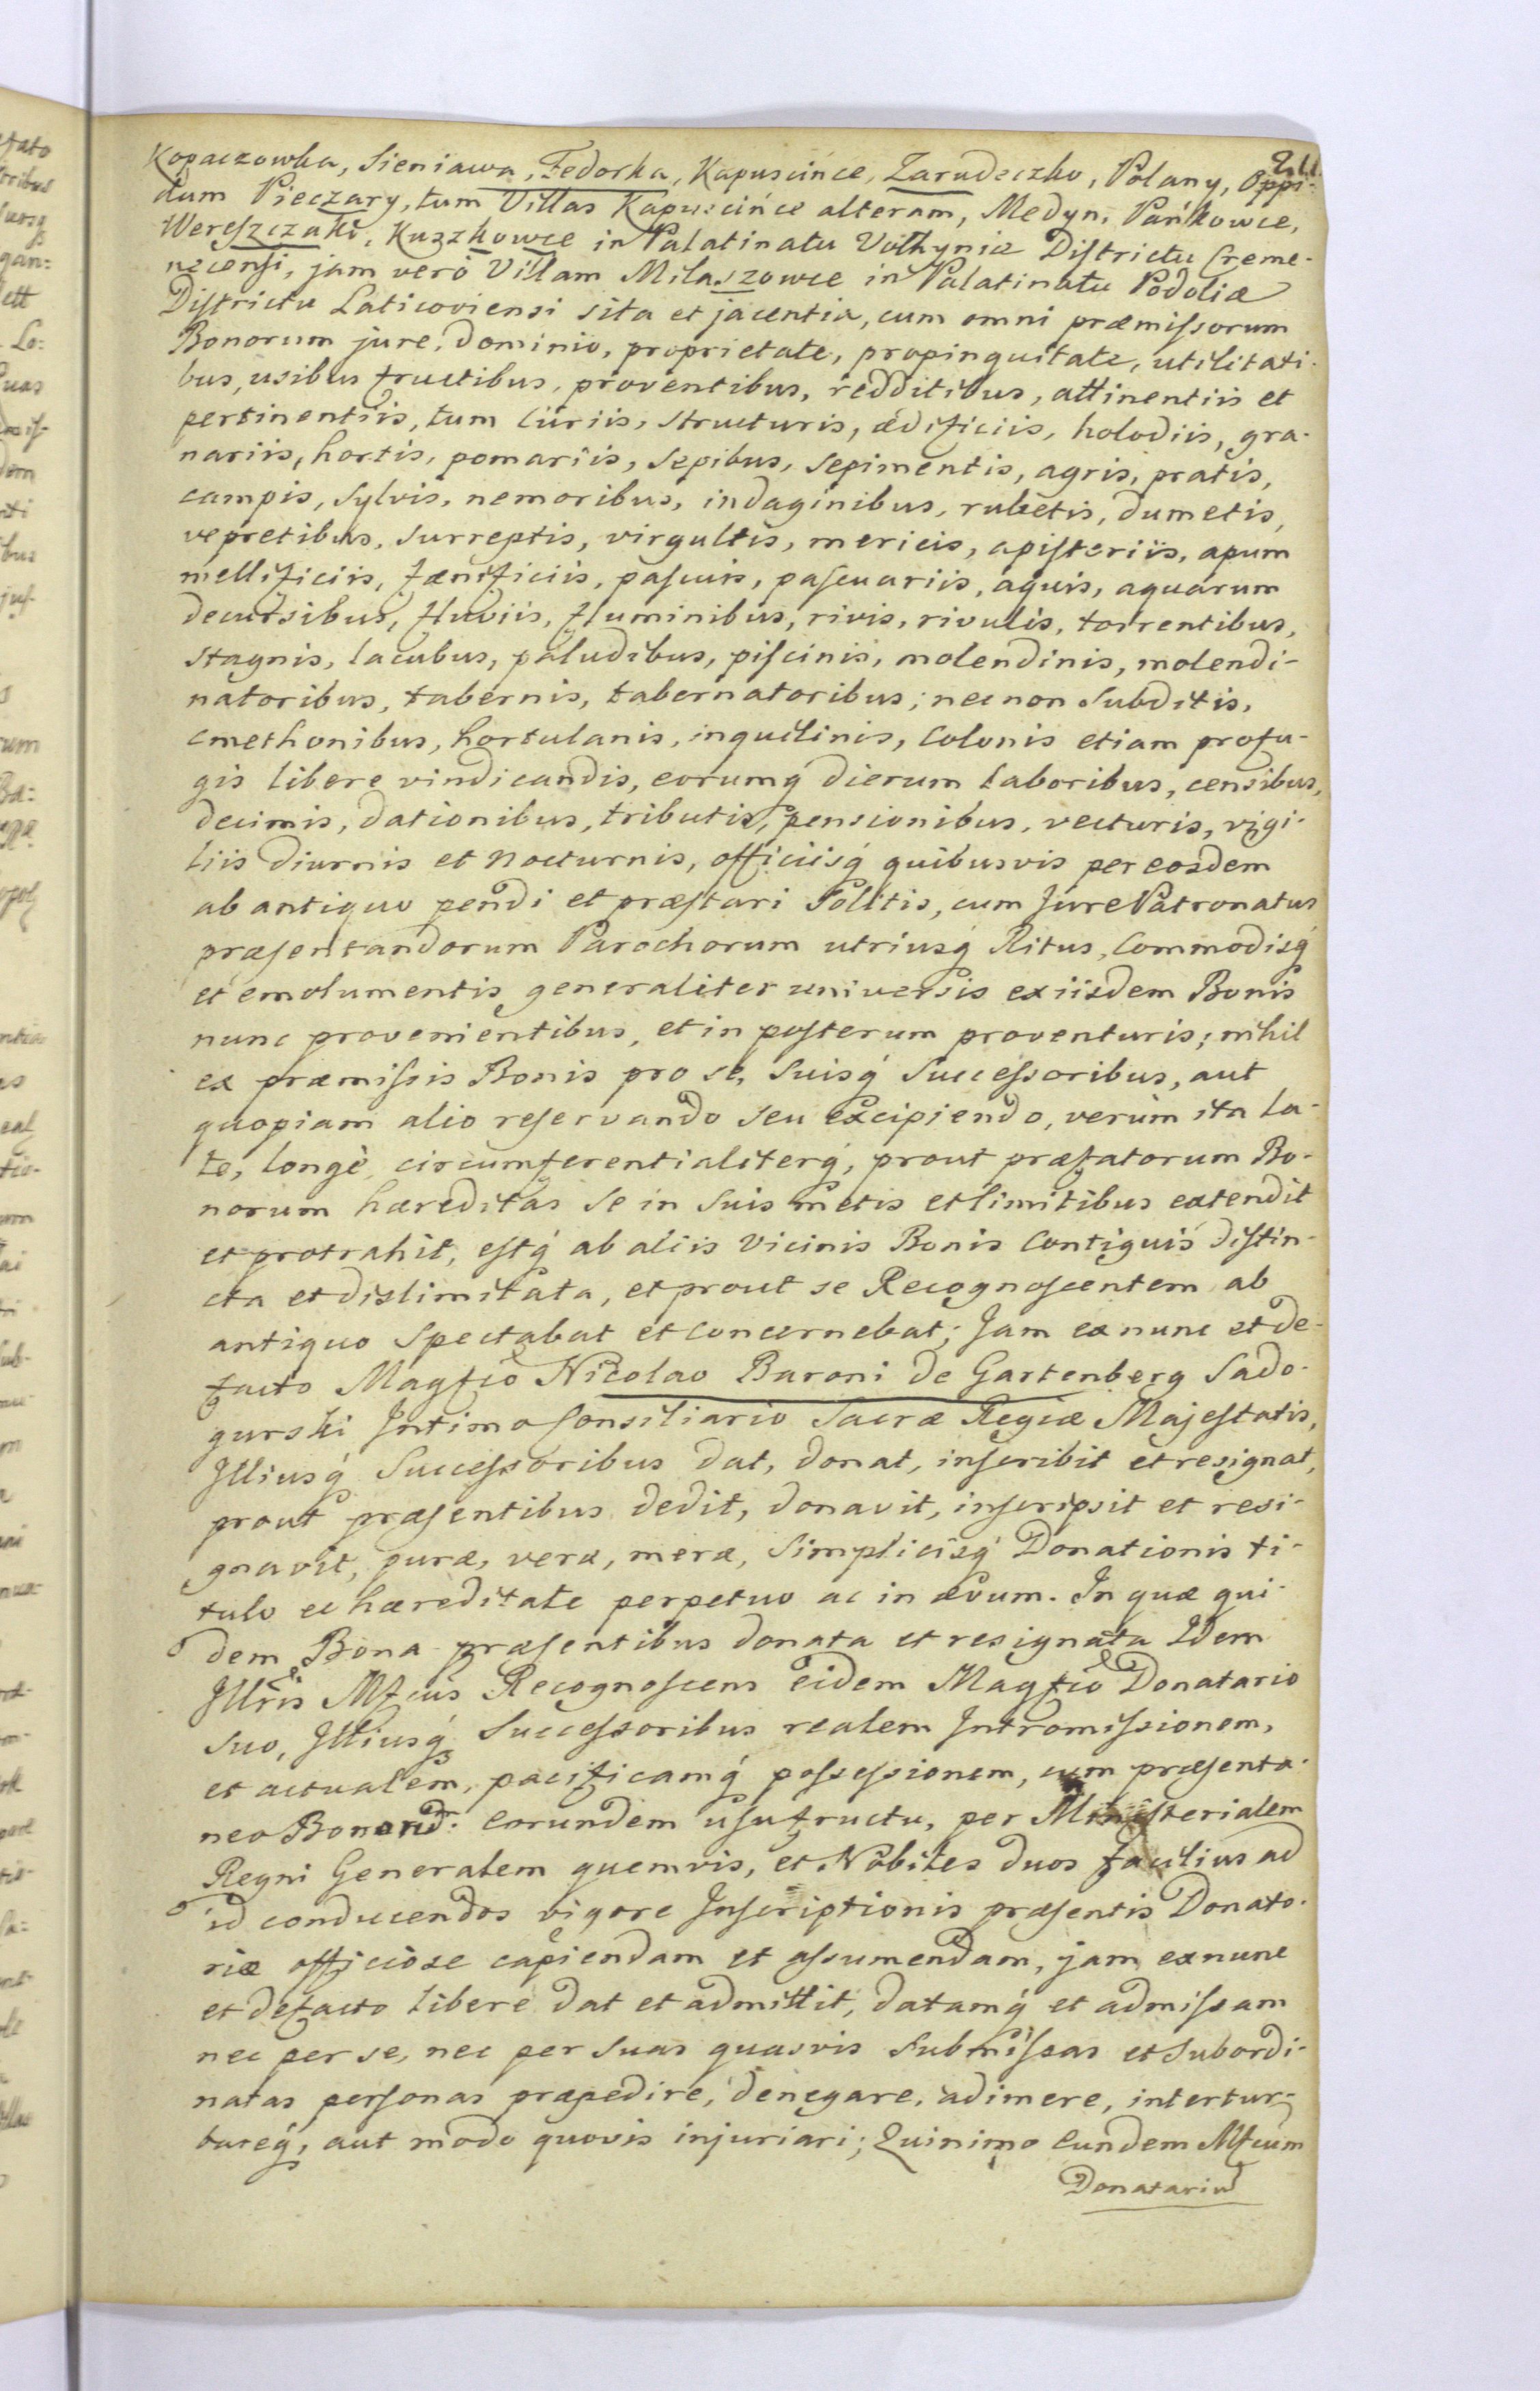 Kopaczowka, Sieniawa, Fedorka, Kapuscińce, Zarudeczko, Polany, Oppi-
dum Pieczary, tum Villas Kapuscińce alteram, Medyn, Pańkowce,
Wereszczaki, Kuszkowce in Palatinatu Volhyniæ Districtu Creme-
necensi, jam verò Villam Milaszowce in Palatinatu Podoliæ
Districtu Laticoviensi sita et jacentia, cum omni præmissorum
Bonorum jure, dominio, proprietate, propinquitate, utilitati-
bus, usibus fructibus, proventibus, redditibus, attinentiis et
pertinentiis, tum Curiis, structuris, ædificiis, holodiis, gra-
nariis, hortis, pomariis, sepibus, sepimentis, agris, pratis,
campis, sylvis, nemoribus, indaginibus, rubetis, dumetis,
vepretibus, surreptis, virgultis, mericis, apisteriis, apum
mellificiis, fænificiis, pascuis, pascuariis, aquis, aquarum
decursibus, fluviis, fluminibus, rivis, rivulis, torrentibus,
stagnis, lacubus, paludibus, piscinis, molendinis, molendi-
natoribus, tabernis, tabernatoribus; necnon Subditis,
cmethonibus, hortulanis, inquilinis, Colonis etiam profu-
gis libere vindicandis, eorumq́ dierum laboribus, censibus,
decimis, dationibus, tributis, pensionibus, vecturis, vigi-
liis diurnis et nocturnis, officiisq́ quibusvis per eosdem
ab antiquo pendi et præstari Solitis, cum Jure Patronatus
præsentandorum Parochorum utriusq́ Ritus, Commodisq́
et emolumentis generaliter universis ex iisdem Bonis
nunc provenientibus, et in posterum proventuris; nihil
ex præmissis Bonis pro se, Suisq́ Successoribus, aut
quopiam alio reservando seu excipiendo, verùm ita la-
te, longè, circumferentialiterq́, prout præfatorum Bo-
norum hæreditas se in Suis metis et limitibus extendit
et protrahit, estq́ ab aliis Vicinis Bonis Contiguis distin-
cta et dislimitata, et prout se Recognoscentem ab
antiquo Spectabat et Concernebat; Jam ex nunc et de-
facto Magfco Nicolao Baroni de Gartenberg Sado-
gurski Intimo Consiliario Sacræ Regiæ Majestatis,
Illiusq́ Successoribus dat, donat, inscribit et resignat,
prout præsentibus dedit, donavit, inscripsit et resi-
gnavit, puræ, veræ, meræ, Simplicisq́ Donationis ti-
tulo ec hæreditate perpetuo ac in ævum. In quæ qui-
dem Bona præsentibus donata et resignata Idem
Illris Mfcus Recognoscens eidem Magfco Donatario
Suo, Illiusq́ Successoribus realem Intromissionem,
et actualem, pacificamq́ possessionem, cum præsenta-
neo Bonorum Eorundem usufructu, per Ministerialem
Regni Generalem quemvis, et Nobiles duos facilius ad
id conducendos vigore Inscriptionis præsentis Donato-
riæ officiose capiendam et assumendam, jam ex nunc
et defacto libere dat et admittit, datamq́ et admissam
nec per se, nec per Suas quasvis Submissas et Subordi-
natas personas præpedire, denegare, adimere, intertur-
bareq́, aut modo quovis injuriari; Quinimo Eundem Mfcum
Donatarium